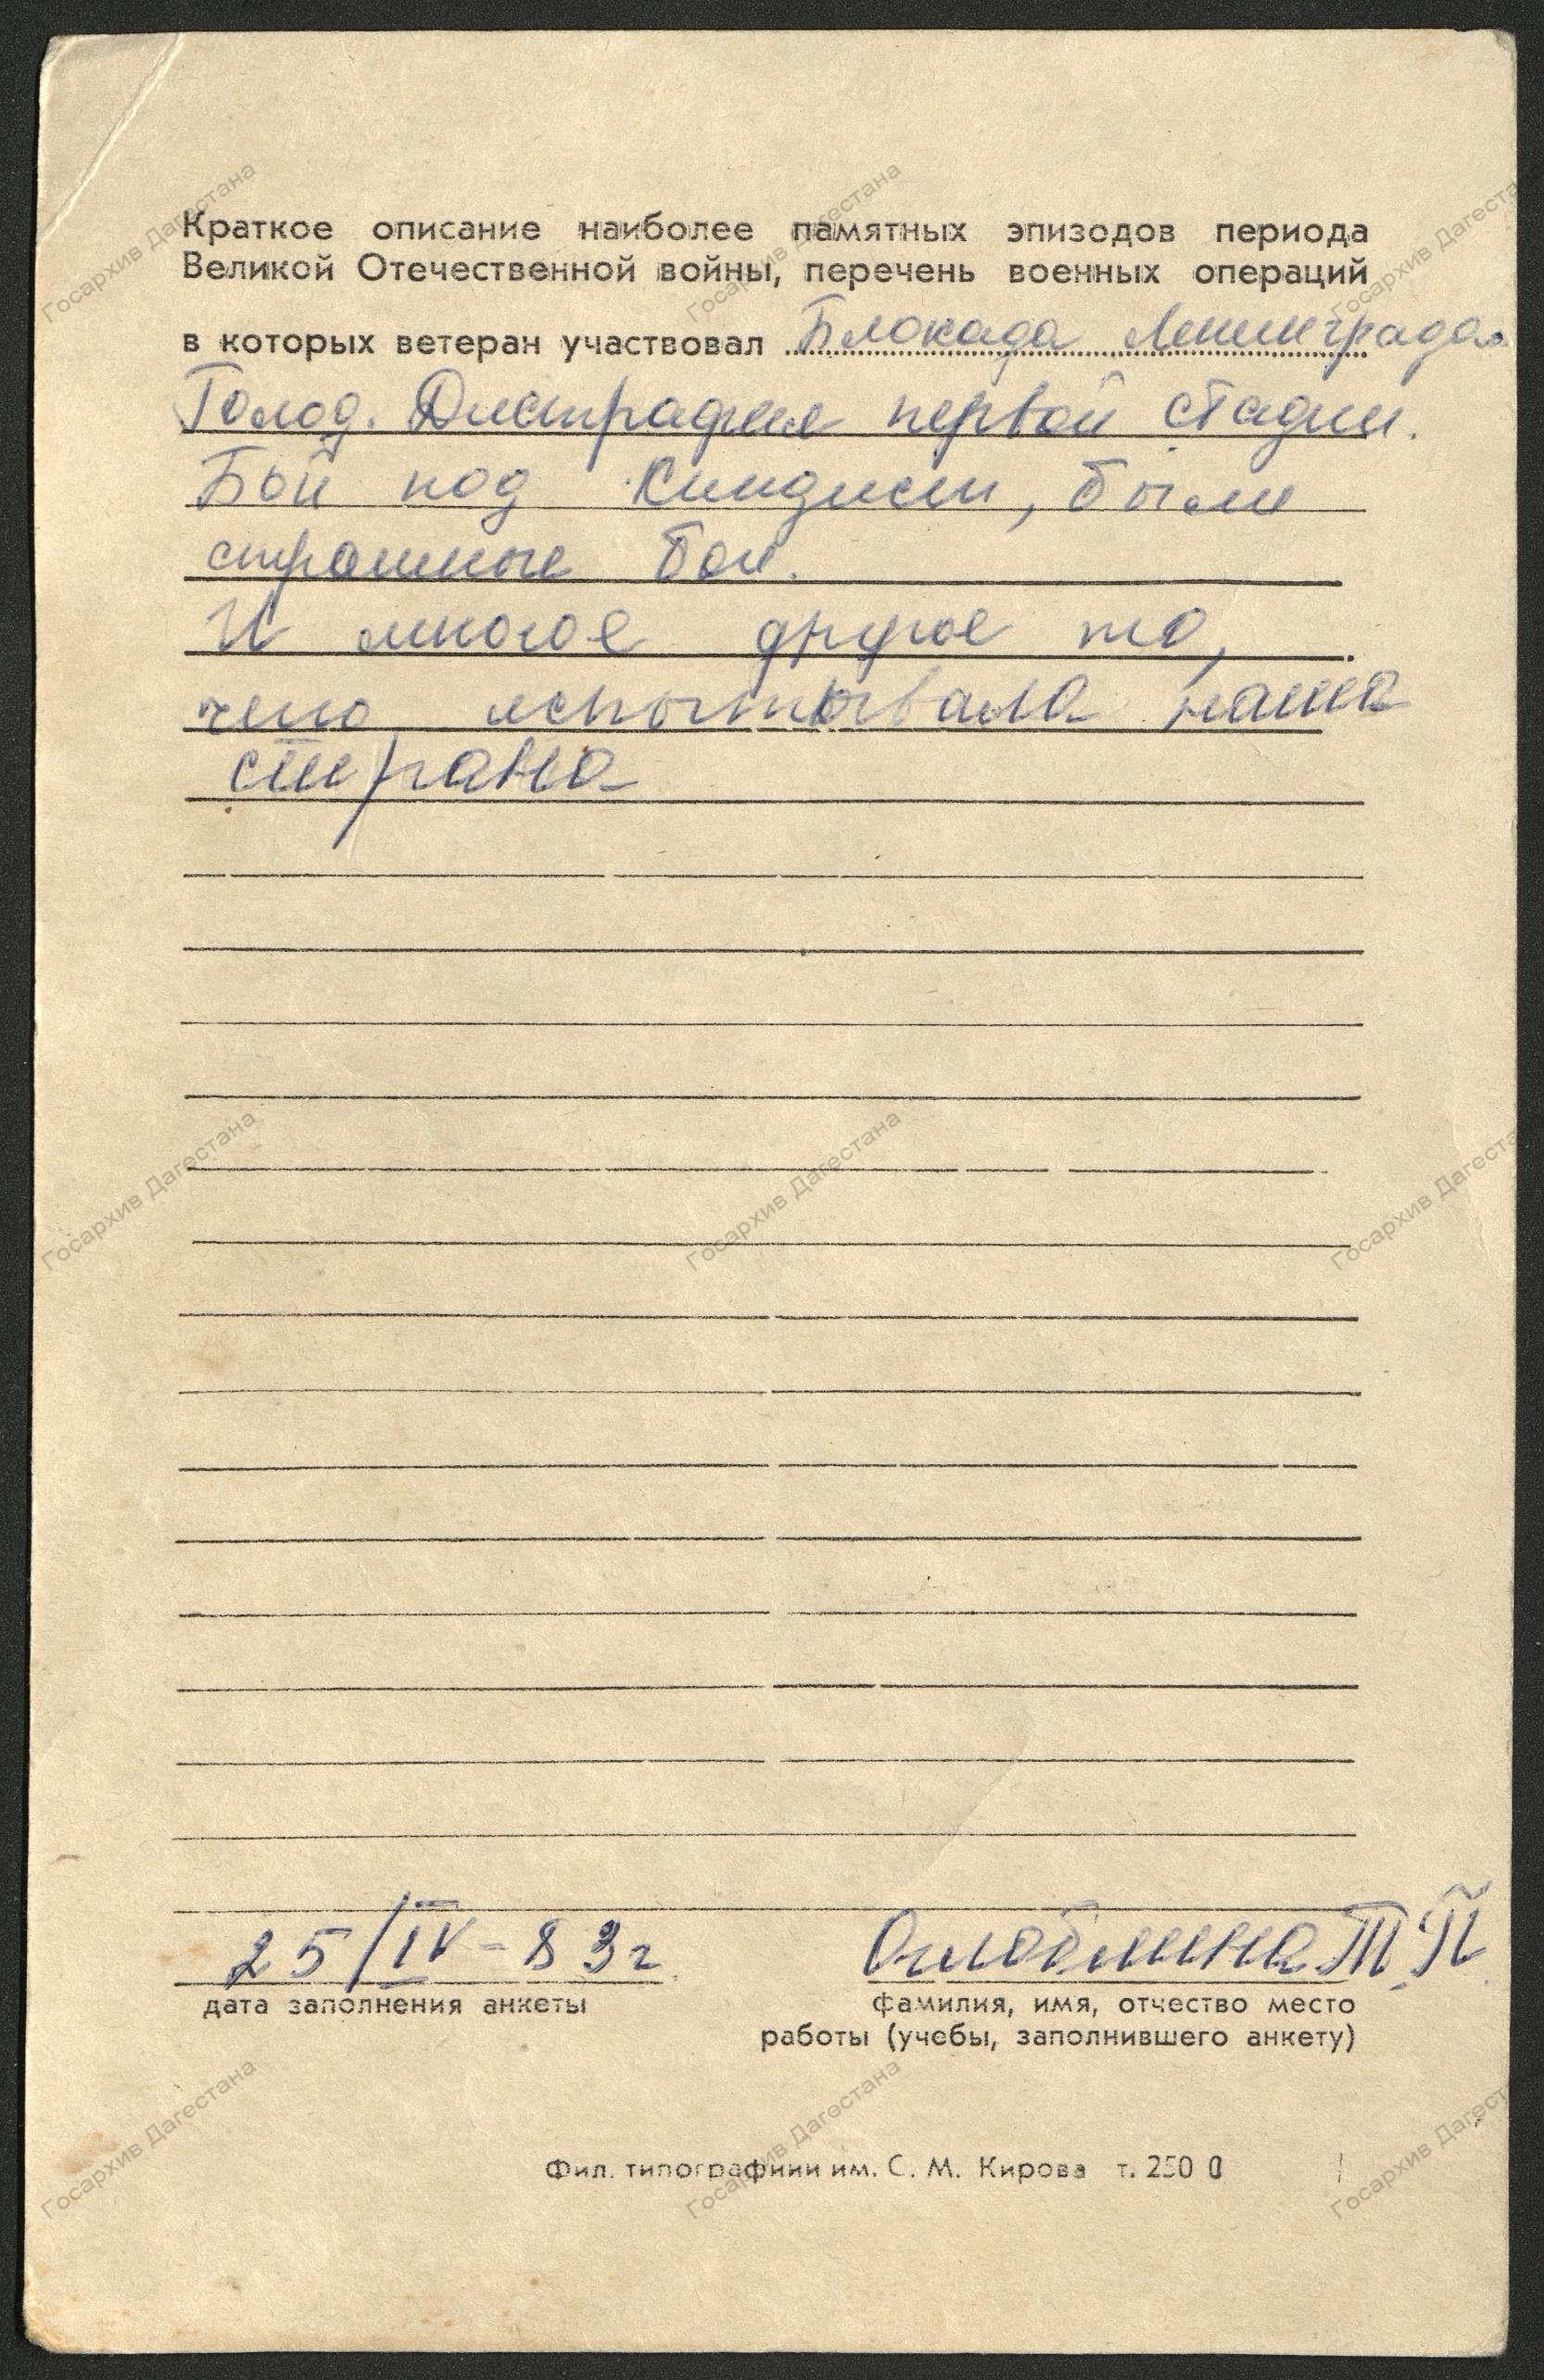 Краткое описание наиболее памятных эпизодов периода
Великой Отечественной войны, перечень военных операций
в которых ветеран участвовал Блокада Ленинграда.
Голод. Дистрафия первой стадии.
Бой под были
страшные бои.
И многое другое то,
чего испытывала наша
страна
25/IV-83г
дата заполнения анкеты
Т П
фамилия, имя, отчество место
работы (учебы, заполнившего анкету)
Фил. типографиии им. С. М. Кирова т. 250 0
Госархив Дагестана
Госархив Дагестана
Госархив Дагестана
Госархив Дагестана
Госархив Дагестана
Госархив Дагестана
Госархив Дагестана
Госархив Дагестана
Госархив Дагестана